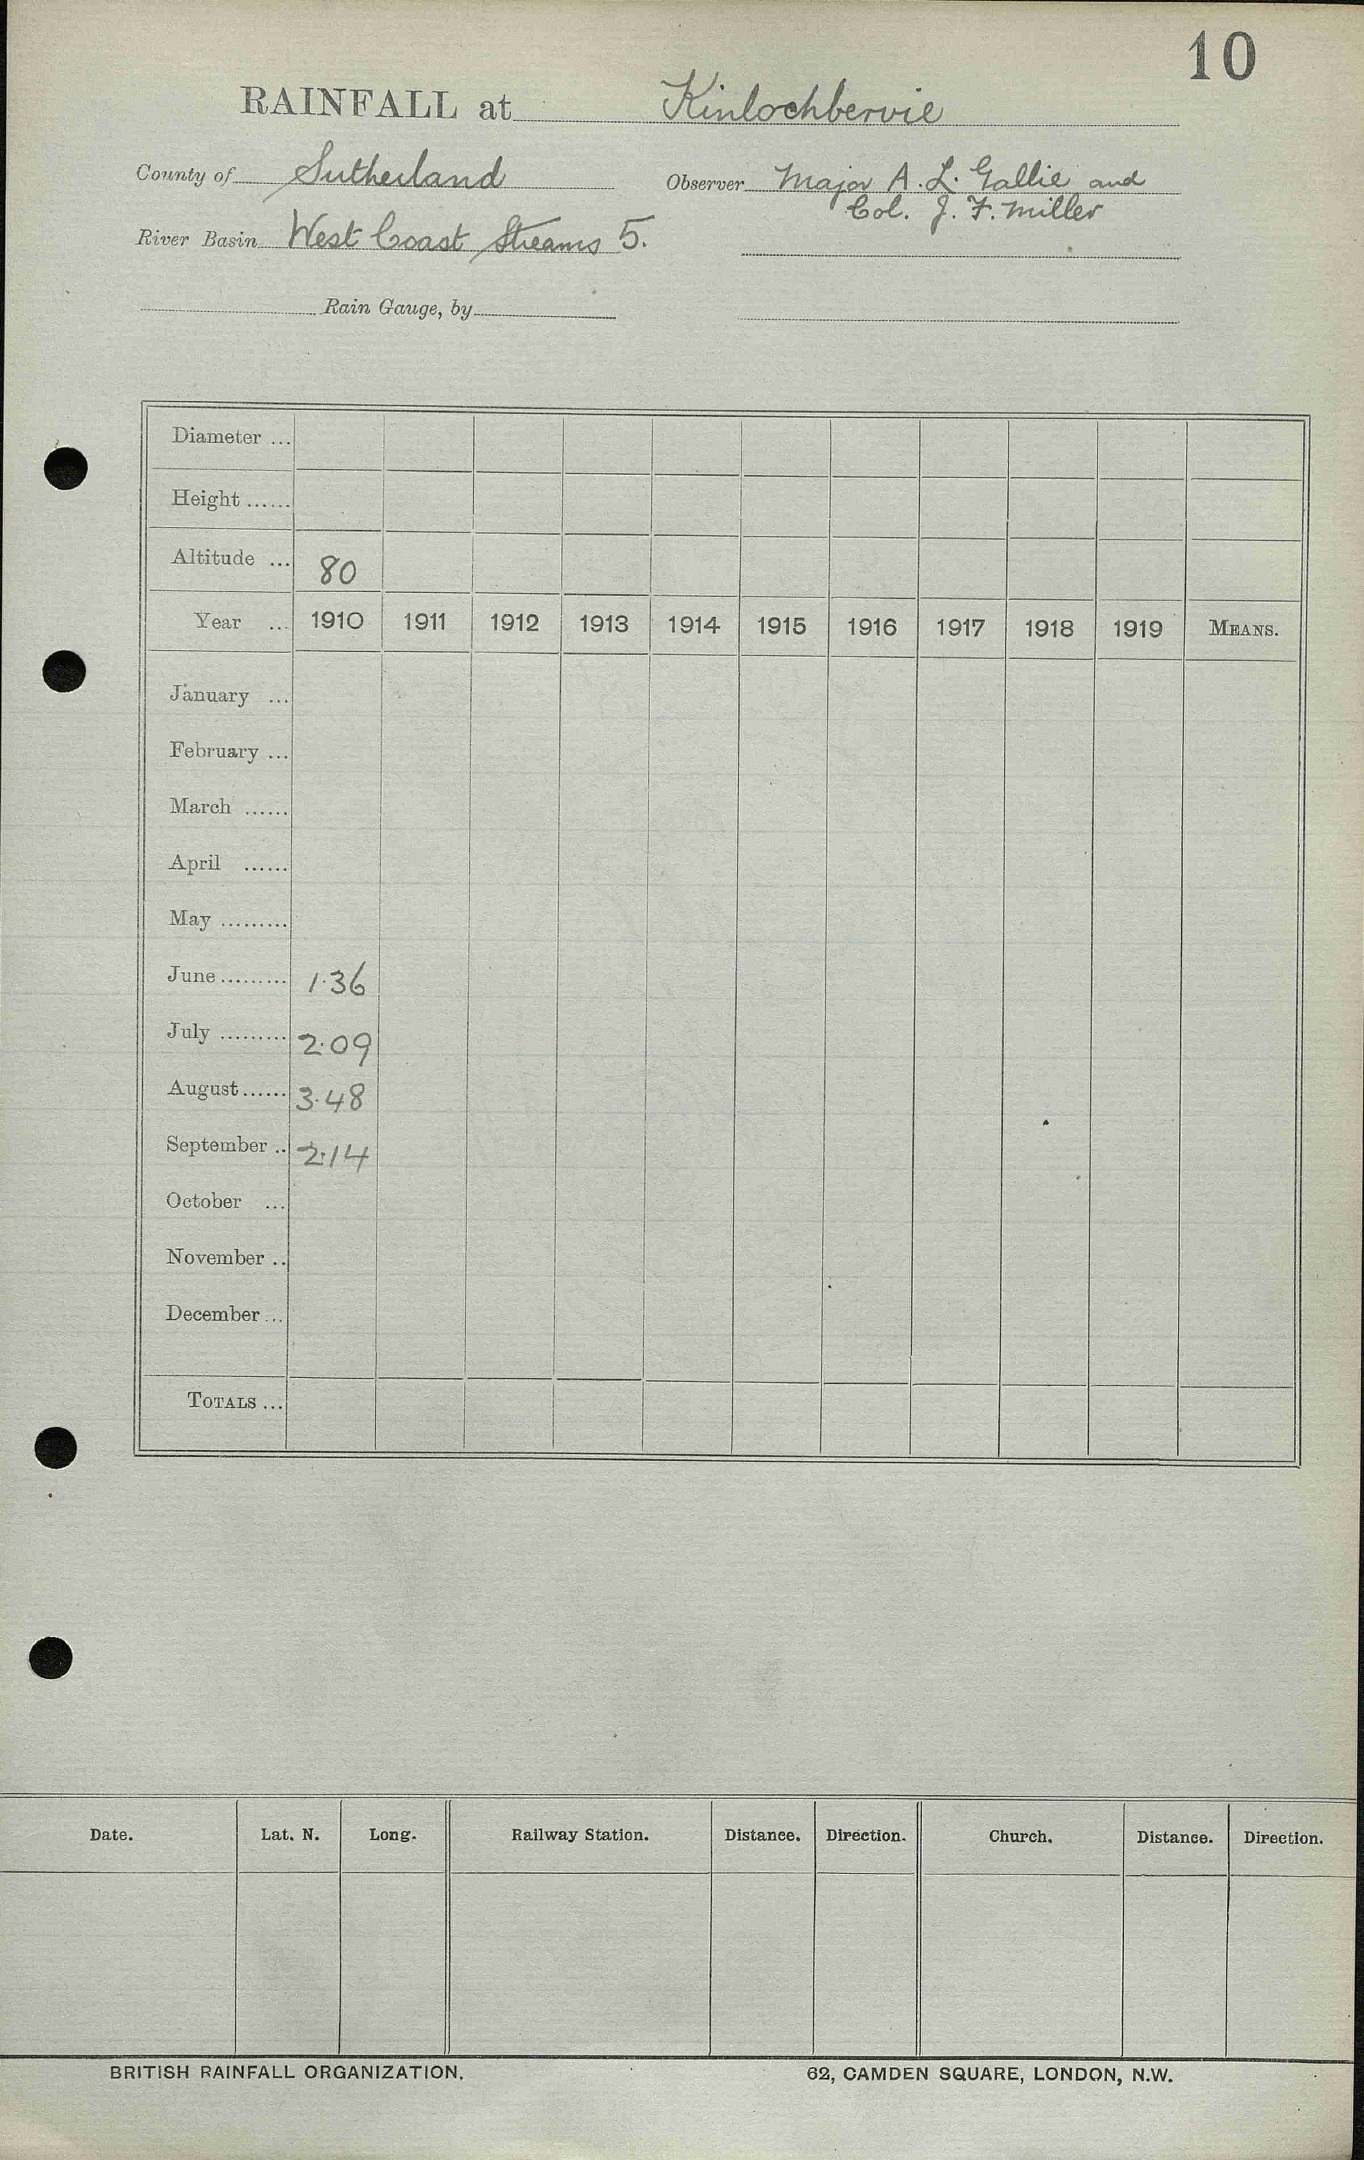 10
RAINFALL at Kinlochbervie
County of Sutherland
Observer Major A. L. Gallie and
Col. J. F. Miller
River Basin West Coast Streams 5.
Rain Gauge, by
Diameter ...
Height ......
Altitude ... 80
Year ... 1910 1911 1912 1913 1914 1915 1916 1917 1918 1919 MEANS.
January ...
February ...
March ......
April ......
May .........
June ......... 1.36
July ......... 2.09
August ...... 3.48
September .. 2.14
October ...
November ..
December ...
TOTALS ...
Date. Lat. N. Long. Railway Station. Distance. Direction. Church. Distance. Direction.
BRITISH RAINFALL ORGANIZATION. 62, CAMDEN SQUARE, LONDON, N.W.